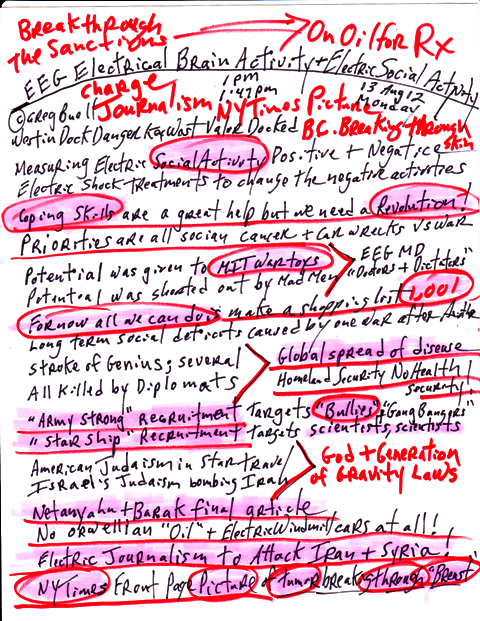 Breakthrough
The Sanctions → On Oil for Rx
EEG Electrical Brain Activity + Electric Social Activity
Charge 1pm 13 Aug 12
© Greg Buell Journalism 1:47pm NYTimes Picture Monday
Westin Dock Danger Key West Valor Docked BC. Breaking through Skin
Measuring Electric Social Activity Positive + Negatice
Electric Shock-Treatments to change the negative activities
Coping Skills are a great help but we need a Revolution!
Priorities are all social cancer + car wrecks vs war
Potential was given to MIT war toys EEG MD
Potential was shouted out by Mad Men "Doctors + Dictators"
For now all we can do is make a shopping list 1,001
Long term social deficits caused by one war after Another
Stroke of Genius; several Global spread of disease
All Killed by Diplomats Homeland Security No Health Security!
"Army Strong" Recruitment Targets "Bullies" + "Gang Bangers"
"Star Ship" Recruitment Targets scientists, scientists
American Judaism in Star Travel God + Generation
Israel's Judaism bombing Iran of Gravity Laws
Netanyahu + Barak final article
No orwellian "Oil" + Electric Windmill cars at all!
Electric Journalism to Attack Iran + Syria!
NYTimes Front Page Picture of tumor breaking through "Breast"